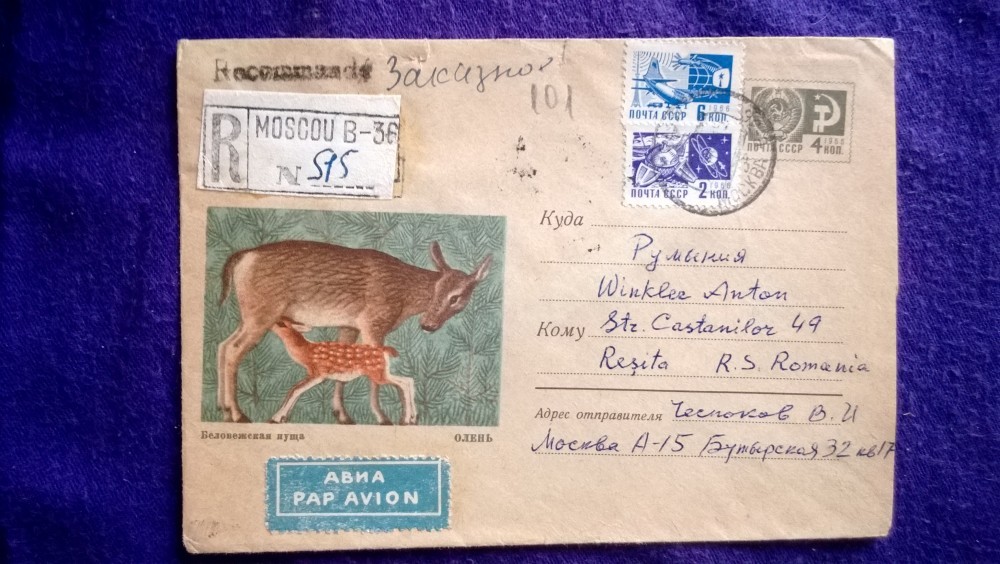 Recommandé Заказное
101
R MOSCOU B-36
N 515
1966
ПОЧТА СССР 6 КОП.
1966
ПОЧТА СССР 2 КОП.
1966
ПОЧТА СССР 4 КОП.
МОСКВА
Куда
Румыния
Winkler Anton
Кому Str. Castanilor 49
Reşita R.S. Romania
Адрес отправителя Чесноков В. И
Москва А-15 Бутырская 32 кв 17
Беловежская пуща ОЛЕНЬ
АВИА
PAR AVION